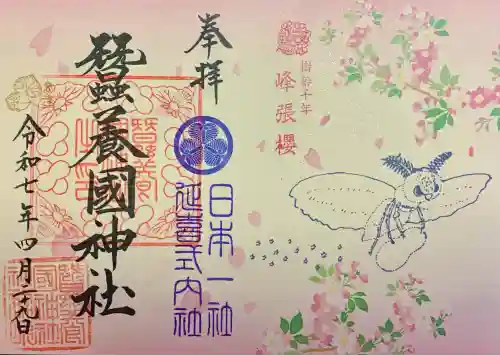 樹齢千年
峰張櫻
奉拝
日本一社
延喜式内社
蠶養國神社
令和七年四月二十九日